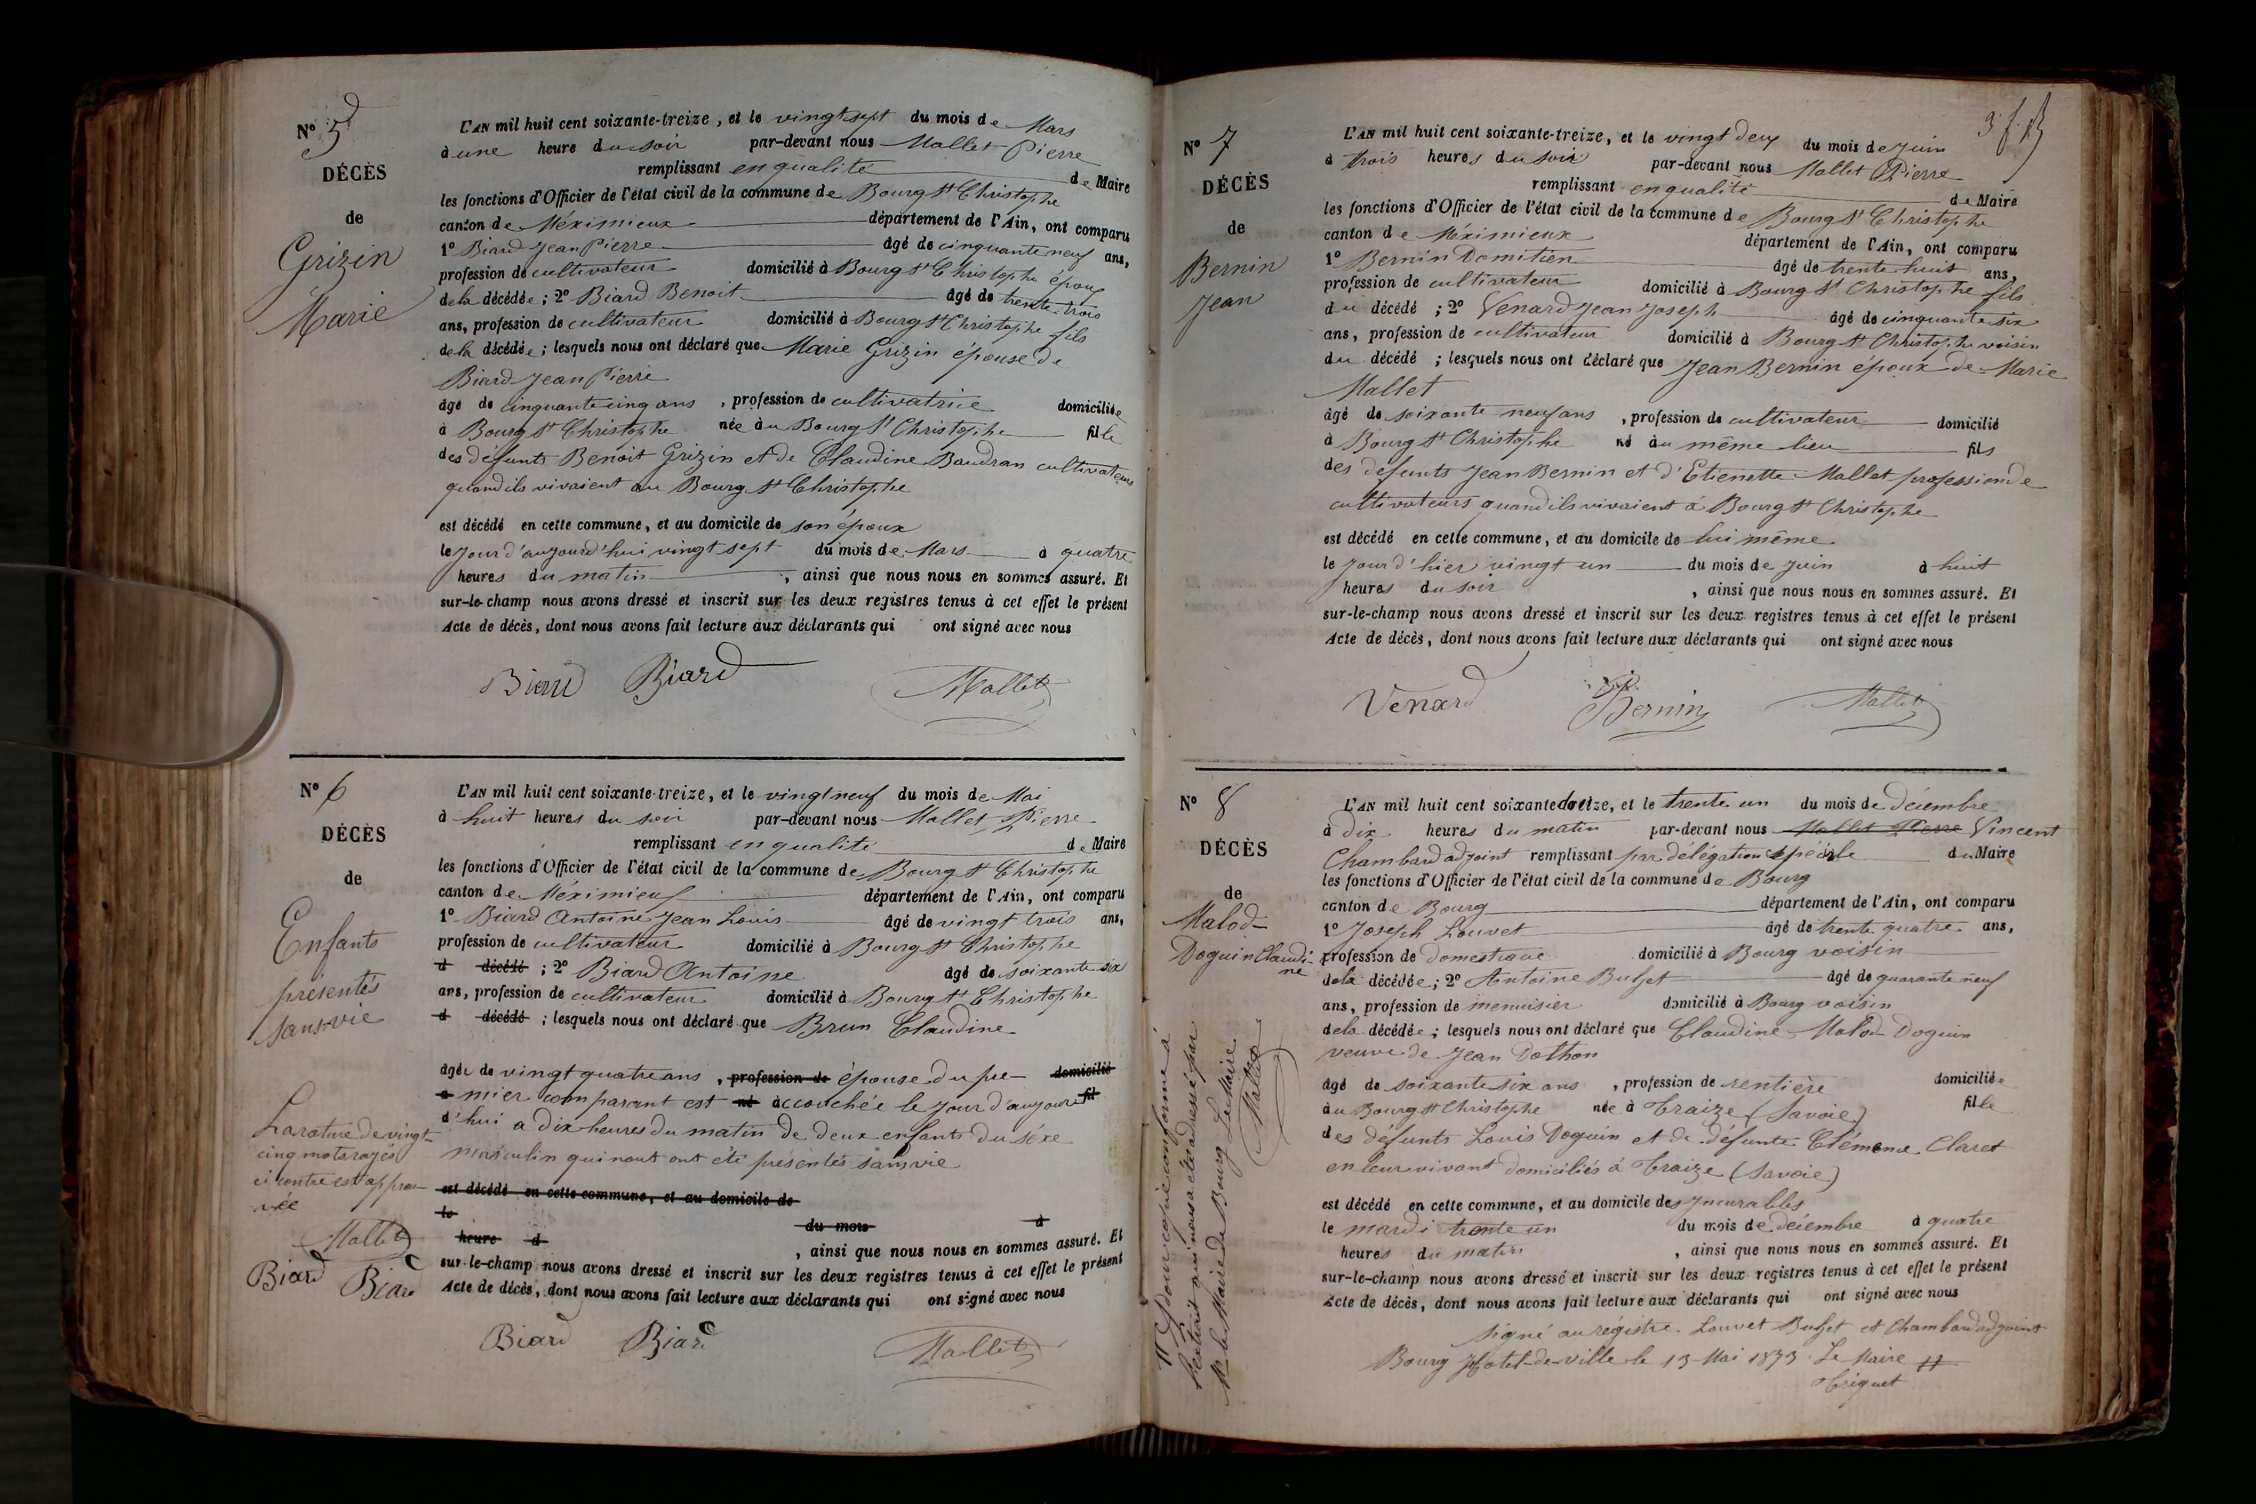 Nº 5
DÉCÈS
de
Grizin
Marie
L'AN mil huit cent soixante-treize, et le vingt sept du mois de Mars
à une heure du soir par-devant nous Mallet Pierre
remplissant en qualité de Maire
les fonctions d'Officier de l'état civil de la commune de Bourg St Christophe
canton de Méximieux département de l'Ain, ont comparu
1º Biard Jean Pierre âgé de cinquante neuf ans,
profession de cultivateur domicilié à Bourg St Christophe époux
de la décédée ; 2º Biard Benoit âgé de trente-trois
ans, profession de cultivateur domicilié à Bourg St Christophe fils
de la décédée ; lesquels nous ont déclaré que Marie Grizin épouse de
Biard Jean Pierre
âgé de cinquante cinq ans , profession de cultivatrice domiciliée
à Bourg St Christophe née à u Bourg St Christophe fille
des défunts Benoit Grizin et de Claudine Baudran cultivateurs
quand ils vivaient au Bourg St Christophe
est décédé en cette commune, et au domicile de son époux
le jour d'aujourd'hui vingt sept du mois de Mars à quatre
heures du matin , ainsi que nous nous en sommes assuré. Et
sur-le-champ nous avons dressé et inscrit sur les deux registres tenus à cet effet le présent
Acte de décès, dont nous avons fait lecture aux déclarants qui ont signé avec nous
Biard Biard Mallet
Nº 6
DÉCÈS
de
Enfants
présentés
sans vie
L'AN mil huit cent soixante-treize, et le vingt neuf du mois de Mai
à huit heures du soir par-devant nous Mallet Pierre
remplissant en qualité de Maire
les fonctions d'Officier de l'état civil de la commune de Bourg St Christophe
canton de Méximieux département de l'Ain, ont comparu
1º Biard Antoine Jean Louis âgé de vingt trois ans,
profession de cultivateur domicilié à Bourg St Christophe
d décédé ; 2º Biard Antoine âgé de soixante six
ans, profession de cultivateur domicilié à Bourg St Christophe
d décédé ; lesquels nous ont déclaré que Brun Claudine
âgée de vingt quatre ans , profession de épouse du pre- domicilié
à mier comparant est né accouchée le jour d'aujour fil
d'hui a dix heures du matin de deux enfants du séxe
masculin qui nous ont été présentés sans vie
est décédé en cette commune, et au domicile de
le du mois à
heure d , ainsi que nous nous en sommes assuré. Et
sur-le-champ nous avons dressé et inscrit sur les deux registres tenus à cet effet le présent
Acte de décès, dont nous avons fait lecture aux déclarants qui ont signé avec nous
Biard Biard Mallet
La rature de vingt-
cinq mots rayés
ci contre est approu-
vée
Mallet
Biard Biard
3 f.
Nº 7
DÉCÈS
de
Bernin
Jean
L'AN mil huit cent soixante-treize, et le vingt deux du mois de Juin
à trois heures du soir par-devant nous Mallet Pierre
remplissant en qualité de Maire
les fonctions d'Officier de l'état civil de la commune de Bourg St Christophe
canton de Méximieux département de l'Ain, ont comparu
1º Bernin Domitien âgé de trente huit ans,
profession de cultivateur domicilié à Bourg St Christophe fils
du décédé ; 2º Venard Jean Joseph âgé de cinquante six
ans, profession de cultivateur domicilié à Bourg St Christophe voisin
du décédé ; lesquels nous ont déclaré que Jean Bernin époux de Marie
Mallet
âgé de soixante neuf ans , profession de cultivateur domicilié
à Bourg St Christophe né à u même lieu fils
des défunts Jean Bernin et d'Etienette Mallet profession de
cultivateurs quand ils vivaient à Bourg St Christophe
est décédé en cette commune, et au domicile de lui même
le jour d'hier vingt un du mois de Juin à huit
heures du soir , ainsi que nous nous en sommes assuré. Et
sur-le-champ nous avons dressé et inscrit sur les deux registres tenus à cet effet le présent
Acte de décès, dont nous avons fait lecture aux déclarants qui ont signé avec nous
Venard Bernin Mallet
Nº 8
DÉCÈS
de
Malod-
Doguin Claudi-
ne
L'AN mil huit cent soixante douze, et le trente un du mois de décembre
à dix heures du matin par-devant nous Mallet Pierre Vincent
Chambard adjoint remplissant par délégation spéciale du Maire
les fonctions d'Officier de l'état civil de la commune de Bourg
canton de Bourg département de l'Ain, ont comparu
1º Joseph Louvet âgé de trente quatre ans,
profession de domestique domicilié à Bourg voisin
de la décédée ; 2º Antoine Buffet âgé de quarante neuf
ans, profession de menuisier domicilié à Bourg voisin
de la décédée ; lesquels nous ont déclaré que Claudine Malod Doguin
veuve de Jean Dothon
âgé de soixante six ans , profession de rentière domiciliée
à u Bourg St Christophe née à Traize (Savoie) fille
des défunts Louis Doguin et de défunte Clémence Claret
en leur vivant domiciliés à Traize (Savoie)
est décédé en cette commune, et au domicile des Incurables
le mardi trente un du mois de décembre à quatre
heures du matin , ainsi que nous nous en sommes assuré. Et
sur-le-champ nous avons dressé et inscrit sur les deux registres tenus à cet effet le présent
Acte de décès, dont nous avons fait lecture aux déclarants qui ont signé avec nous
signé au régistre Louvet Buffet et Chambard adjoint
Bourg Hotel-de-ville le 13 Mai 1873 Le Maire
Triquet
Pour copie conforme à
l'extrait qui nous a été adressé par
Mr le Maire de Bourg Le Maire
Mallet